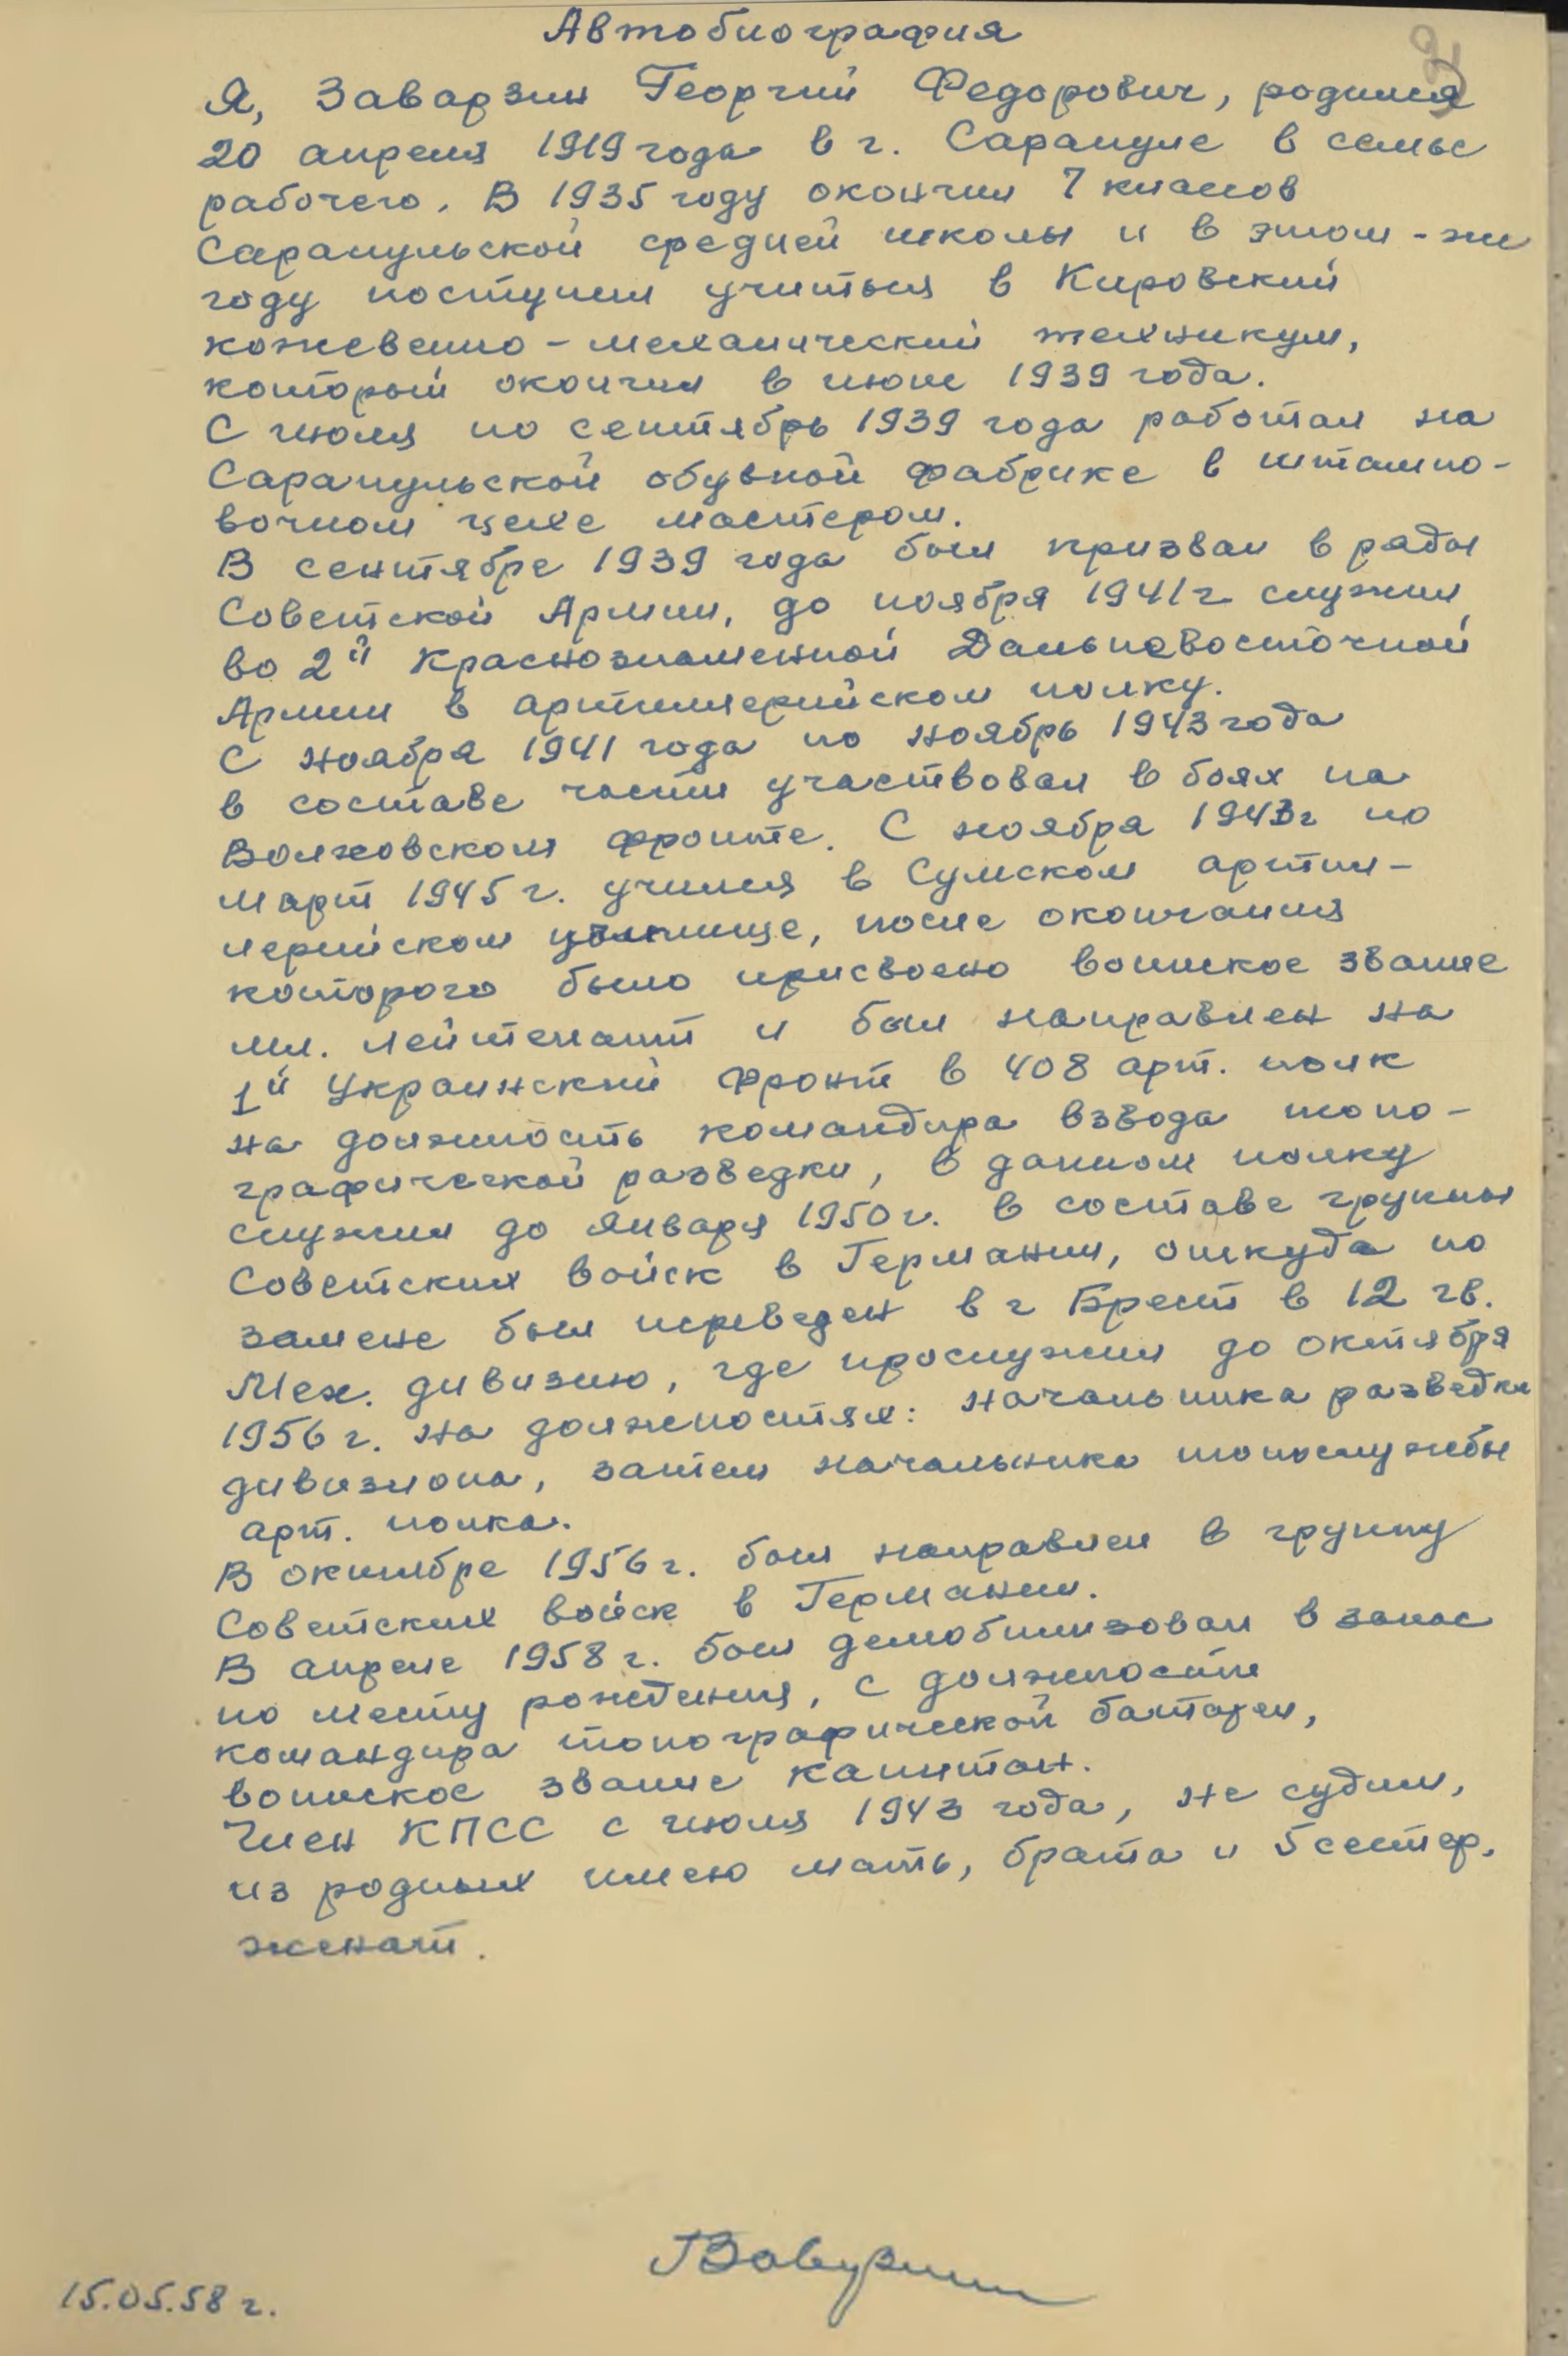 Автобиография
Я, Заварзин Георгий Федорович, родился
20 апреля 1919 года в г. Сарапуле в семье
рабочего. В 1935 году окончил 7 классов
Сарапульской средней школы и в этом-же
году поступил учиться в Кировский
кожевенно-механический техникум,
который окончил в июле 1939 года.
С июля по сентябрь 1939 года работал на
Сарапульской обувной фабрике в штампо-
вочном цехе мастером.
В сентябре 1939 года был призван в ряды
Советской Армии, до ноября 1941 г служил
во 2й Краснознаменной Дальневосточной
Армии в артиллерийском полку.
С ноября 1941 года по ноябрь 1943 года
в составе части участвовал в боях на
Волховском фронте. С ноября 1943 г по
март 1945 г. учился в Сумском артил-
лерийском училище, после окончания
которого было присвоено воинское звание
мл. лейтенант и был направлен на
1й Украинский фронт в 408 арт. полк
на должность командира взвода топо-
графической разведки, в данном полку
служил до января 1950 г. в составе группы
Советских войск в Германии, откуда по
замене был переведен в г Брест в 12 гв.
Мех. дивизию, где прослужил до октября
1956 г. на должностях: начальника разведки
дивизиона, затем начальника топослужбы
арт. полка.
В октябре 1956 г. был направлен в группу
Советских войск в Германии.
В апреле 1958 г. был демобилизован в запас
по месту рождения, с должности
командира топографической батареи,
воинское звание капитан.
Член КПСС с июля 1943 года, не судим,
из родных имею мать, брата и 5 сестер,
женат.
ГЗаварзин
15.05.58 г.